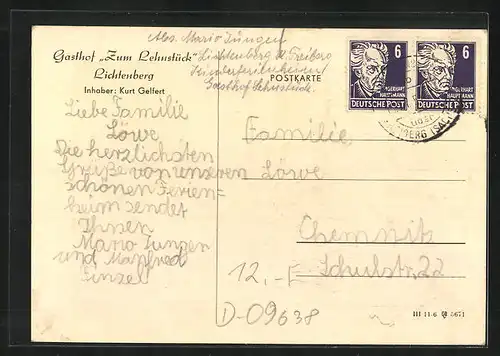 Abs. Mario Jungen
Gasthof „Zum Lehnstück"
Lichtenberg b. Freiberg
Lichtenberg
Kinderferienheim
POSTKARTE
Inhaber: Kurt Gelfert
Gasthof Lehnstück.
6
GERHART
HAUPTMANN
DEUTSCHE POST
6
GERHART
HAUPTMANN
DEUTSCHE POST
Liebe Familie
Löwe
Die herzlichsten
Grüße von unseren
schönen Ferien=
heim sendet
Ihnen
Mario Jungen
und Manfred
Familie
Löwe
Chemnitz
Schulstr. 22
12,-
D-09638
III 11-6 5671